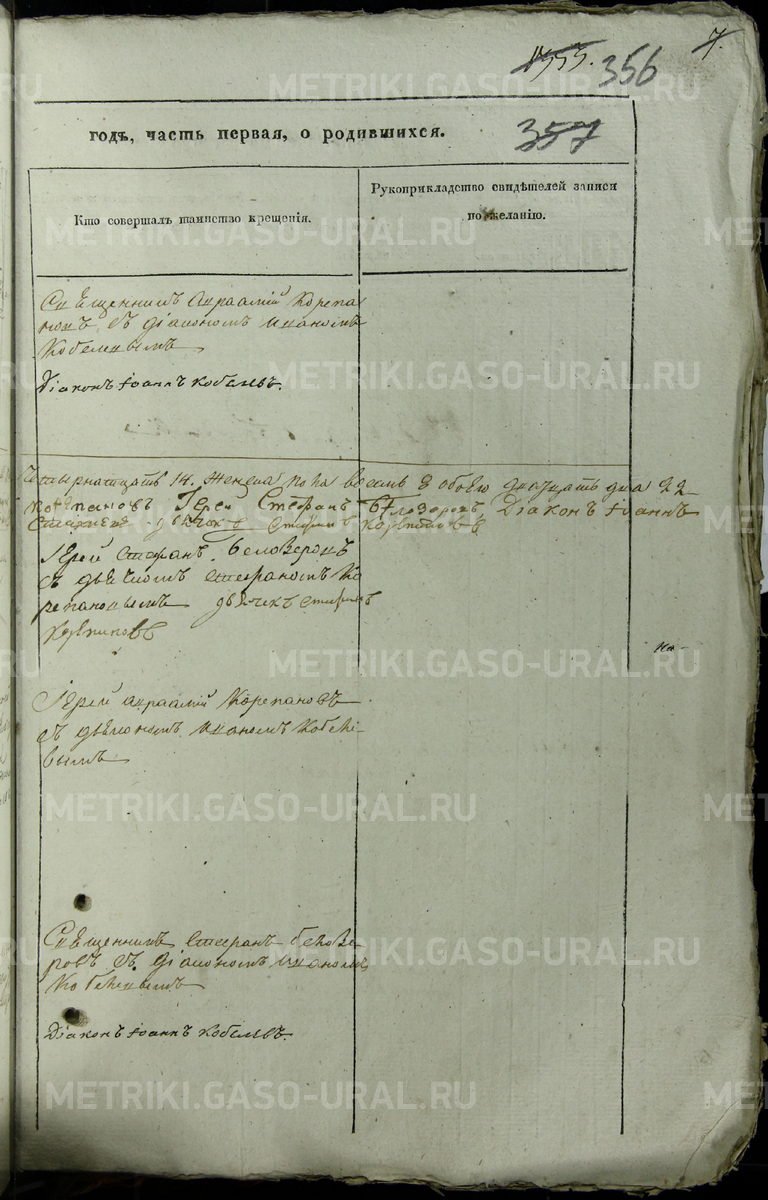 7.
1353. 356
годъ, часть первая, о родившихся.
357
Кто совершалъ таинство крещенія.
Рукоприкладство свидѣтелей записи
по желанію.
Священникъ Авраамій Корепа
новъ, съ діакономъ Иваномъ
Кобелевымъ
Діаконъ Іоаннъ Кобелевъ.
Четырнатцать 14. Женска пола восемь 8 обоего дватцать два 22
Корепановъ Іерей Стефанъ Бѣлозеровъ Діаконъ Іоаннъ
дьячекъ Стефанъ Корепановъ
Іерей Стефанъ Белозеровъ
съ дьячкомъ Стефаномъ Ко
репановымъ дьячекъ Стефанъ
Корепановъ
На
Іерей Авраамій Корепановъ
съ діакономъ Иваномъ Кобеле
вымъ
Священникъ Стефанъ Белозе
ровъ съ діакономъ Иваномъ
Кобелевымъ
Діаконъ Іоаннъ Кобелевъ.
METRIKI.GASO-URAL.RU